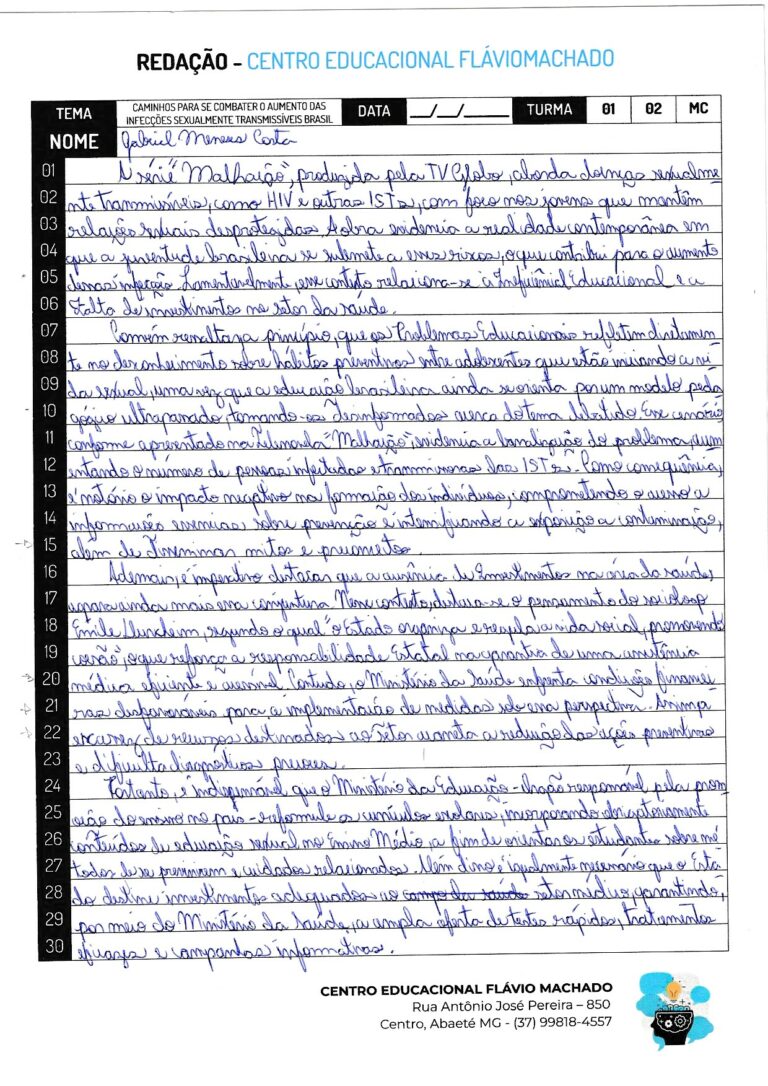 REDAÇÃO - CENTRO EDUCACIONAL FLÁVIOMACHADO
TEMA CAMINHOS PARA SE COMBATER O AUMENTO DAS INFECÇÕES SEXUALMENTE TRANSMISSÍVEIS BRASIL DATA __/__/____ TURMA 01 02 MC
NOME Gabriel Meneses Costa
01 A série "Malhação", produzida pela TV Globo, aborda doenças sexualme
02 nte transmissíveis, como HIV e outras ISTs, com foco nos jovens que mantêm
03 relações sexuais desprotegidas. A obra evidencia a realidade contemporânea em
04 que a juventude brasileira se submete a esses riscos, o que contribui para o aumento
05 dessas infecção. Lamentavelmente, esse contexto relaciona-se à Educacional e a
06 Falta de investimentos no setor da saúde.
07 Convém ressaltar a princípio, que os Problemas Educacionais refletem diretamen
08 te no desconhecimento sobre hábitos preventivos entre adolescentes que estão iniciando a vi
09 da sexual, uma vez que a educação brasileira ainda se orienta por um modelo peda
10 gógico ultrapassado, tornando-os Desinformados acerca do tema debatido. Esse cenário
11 conforme apresentado na telenovela "Malhação", evidencia a banalização do problema, aum
12 entando o número de pessoas infectadas e transmissoras das ISTs. Como consequência,
13 é notório o impacto negativo na formação dos indivíduos, comprometendo o acesso a
14 informações essenciais sobre prevenção e intensificando a exposição a contaminação,
15 além de Disseminar mitos e preconceitos.
16 Ademais, é imperativo destacar que a ausência de Investimentos na área da saúde,
17 agrava ainda mais essa conjuntura. Nesse contexto, destaca-se o pensamento do sociólogo
18 Émile Durkheim, segundo o qual "o Estado organiza e regula a vida social, promovendo
19 coesão", o que reforça a responsabilidade Estatal na garantia de uma assistência
20 médica eficiente e acessível. Contudo, o Ministério da Saúde enfrenta condições financei
21 ras desfavoráveis para a implementação de medidas sob essa perspectiva. Assim, a
22 escassez de recursos destinados ao setor acarreta a redução das ações preventivas
23 e dificulta diagnósticos precoces.
24 Portanto, é indispensável que o Ministério da Educação - órgão responsável pela prom
25 oção do ensino no país - reformule os currículos escolares, incorporando obrigatoriamente
26 conteúdos de educação sexual no Ensino Médio, a fim de orientar os estudantes sobre mé
27 todos de se prevenirem e cuidados relacionados. Além disso, é igualmente necessário que o Esta
28 do destine investimentos adequados ao campo da saúde setor médico, garantindo,
29 por meio do Ministério da Saúde, a ampla oferta de testes rápidos, tratamentos
30 eficazes e campanhas informativas.
CENTRO EDUCACIONAL FLÁVIO MACHADO
Rua Antônio José Pereira – 850
Centro, Abaeté MG - (37) 99818-4557